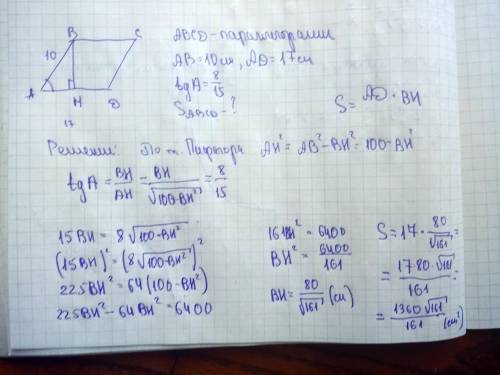 B C
10
A H D
17
ABCD - параллелограмм
AB = 10см, AD = 17см
tgA = 8/15
S_ABCD - ?
S = AD · BH
Решение: По т. Пифагора AH² = AB² - BH² = 100 - BH²
tgA = BH/AH = BH/√(100-BH²) = 8/15
15BH = 8√(100-BH²)
(15BH)² = (8√(100-BH²))²
225BH² = 64(100-BH²)
225BH² - 64BH² = 6400
161BH² = 6400
BH² = 6400/161
BH = 80/√161 (см)
S = 17 · 80/√161 =
= 17·80·√161/161 =
= 1360√161/161 (см²)